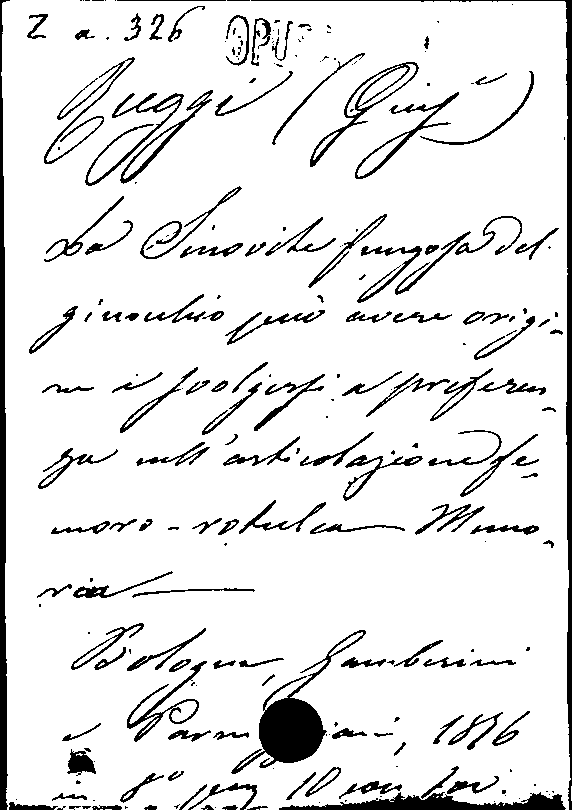 Z a. 326 OPUS.
Ruggi (Giusᵉ)
La Sinovite fungosa del
ginocchio può avere origi-
ne e svolgersi a preferen-
za nell'articolazione fe-
moro-rotulea — Memo-
ria —
Bologna, Gamberini
e Parm iani, 1876
in 8° pag 10 con tav.